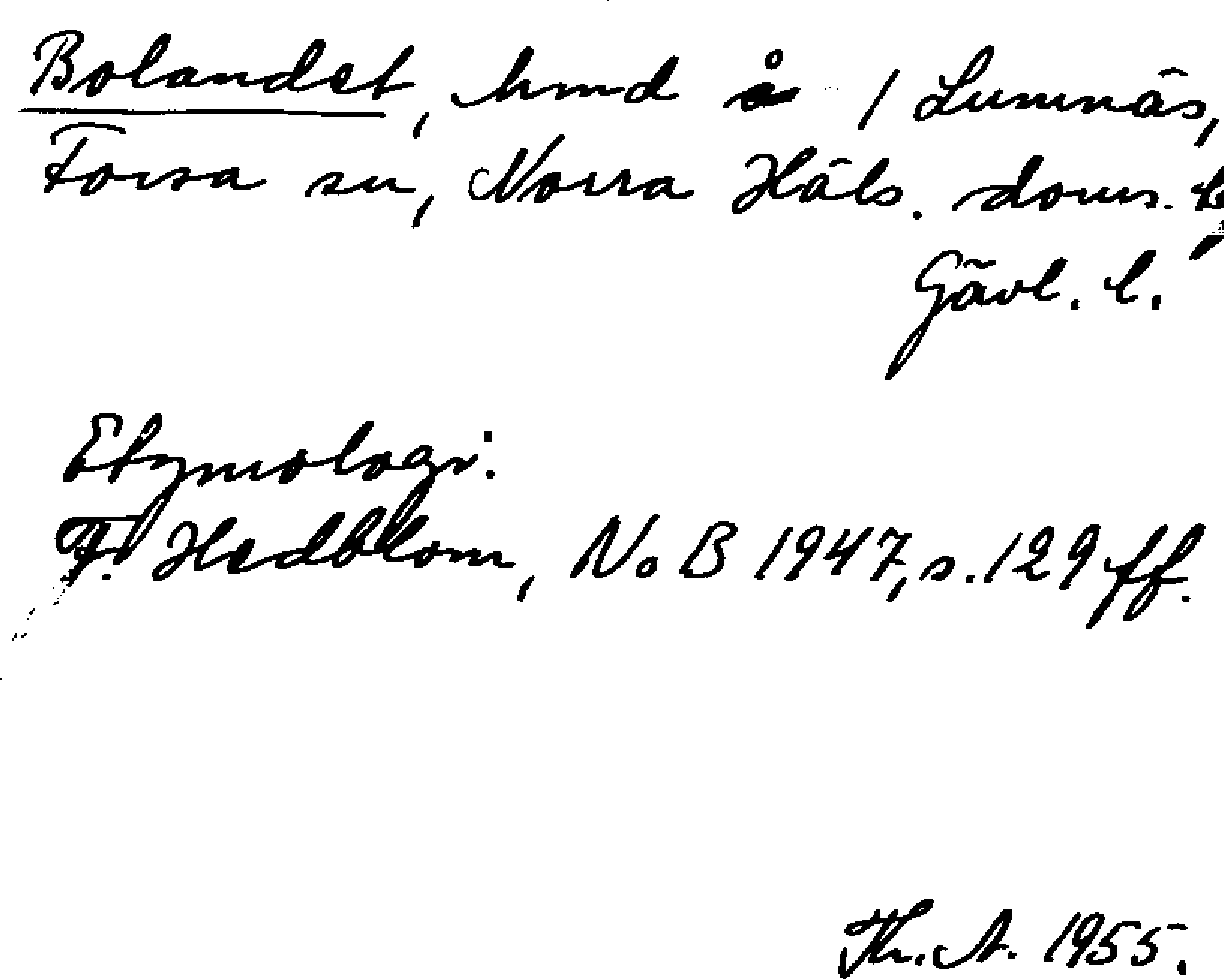 Bolandet, hmd å / Lumnäs,
Forsa sn, Norra Häls. doms.
Gävl. l.
Etymologi:
F. Hedblom, NoB 1947, s. 129 ff.
Th. A. 1955.